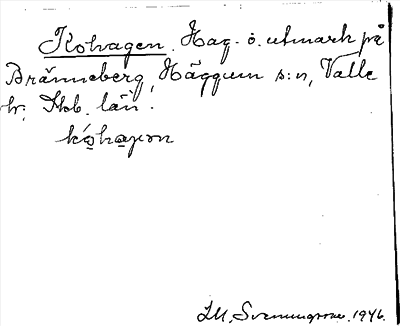 Kohagen. Hag. o. utmark på
Bränneberg, Häggum s:n, Valle
hr. Skb. län.
kóhagen
I.M. Svenungsson. 1946.